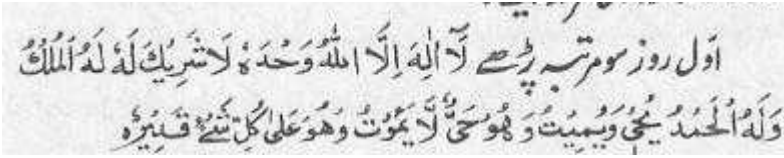 اول روز سو مرتبہ پڑھے لَآ اِلٰهَ اِلَّا اللّٰهُ وَحْدَهٗ لَا شَرِيْكَ لَهٗ لَهُ الْمُلْكُ
وَلَهُ الْحَمْدُ يُحْيٖ وَيُمِيْتُ وَهُوَ حَيٌّ لَّا يَمُوْتُ وَهُوَ عَلٰى كُلِّ شَيْءٍ قَدِيْرٌ